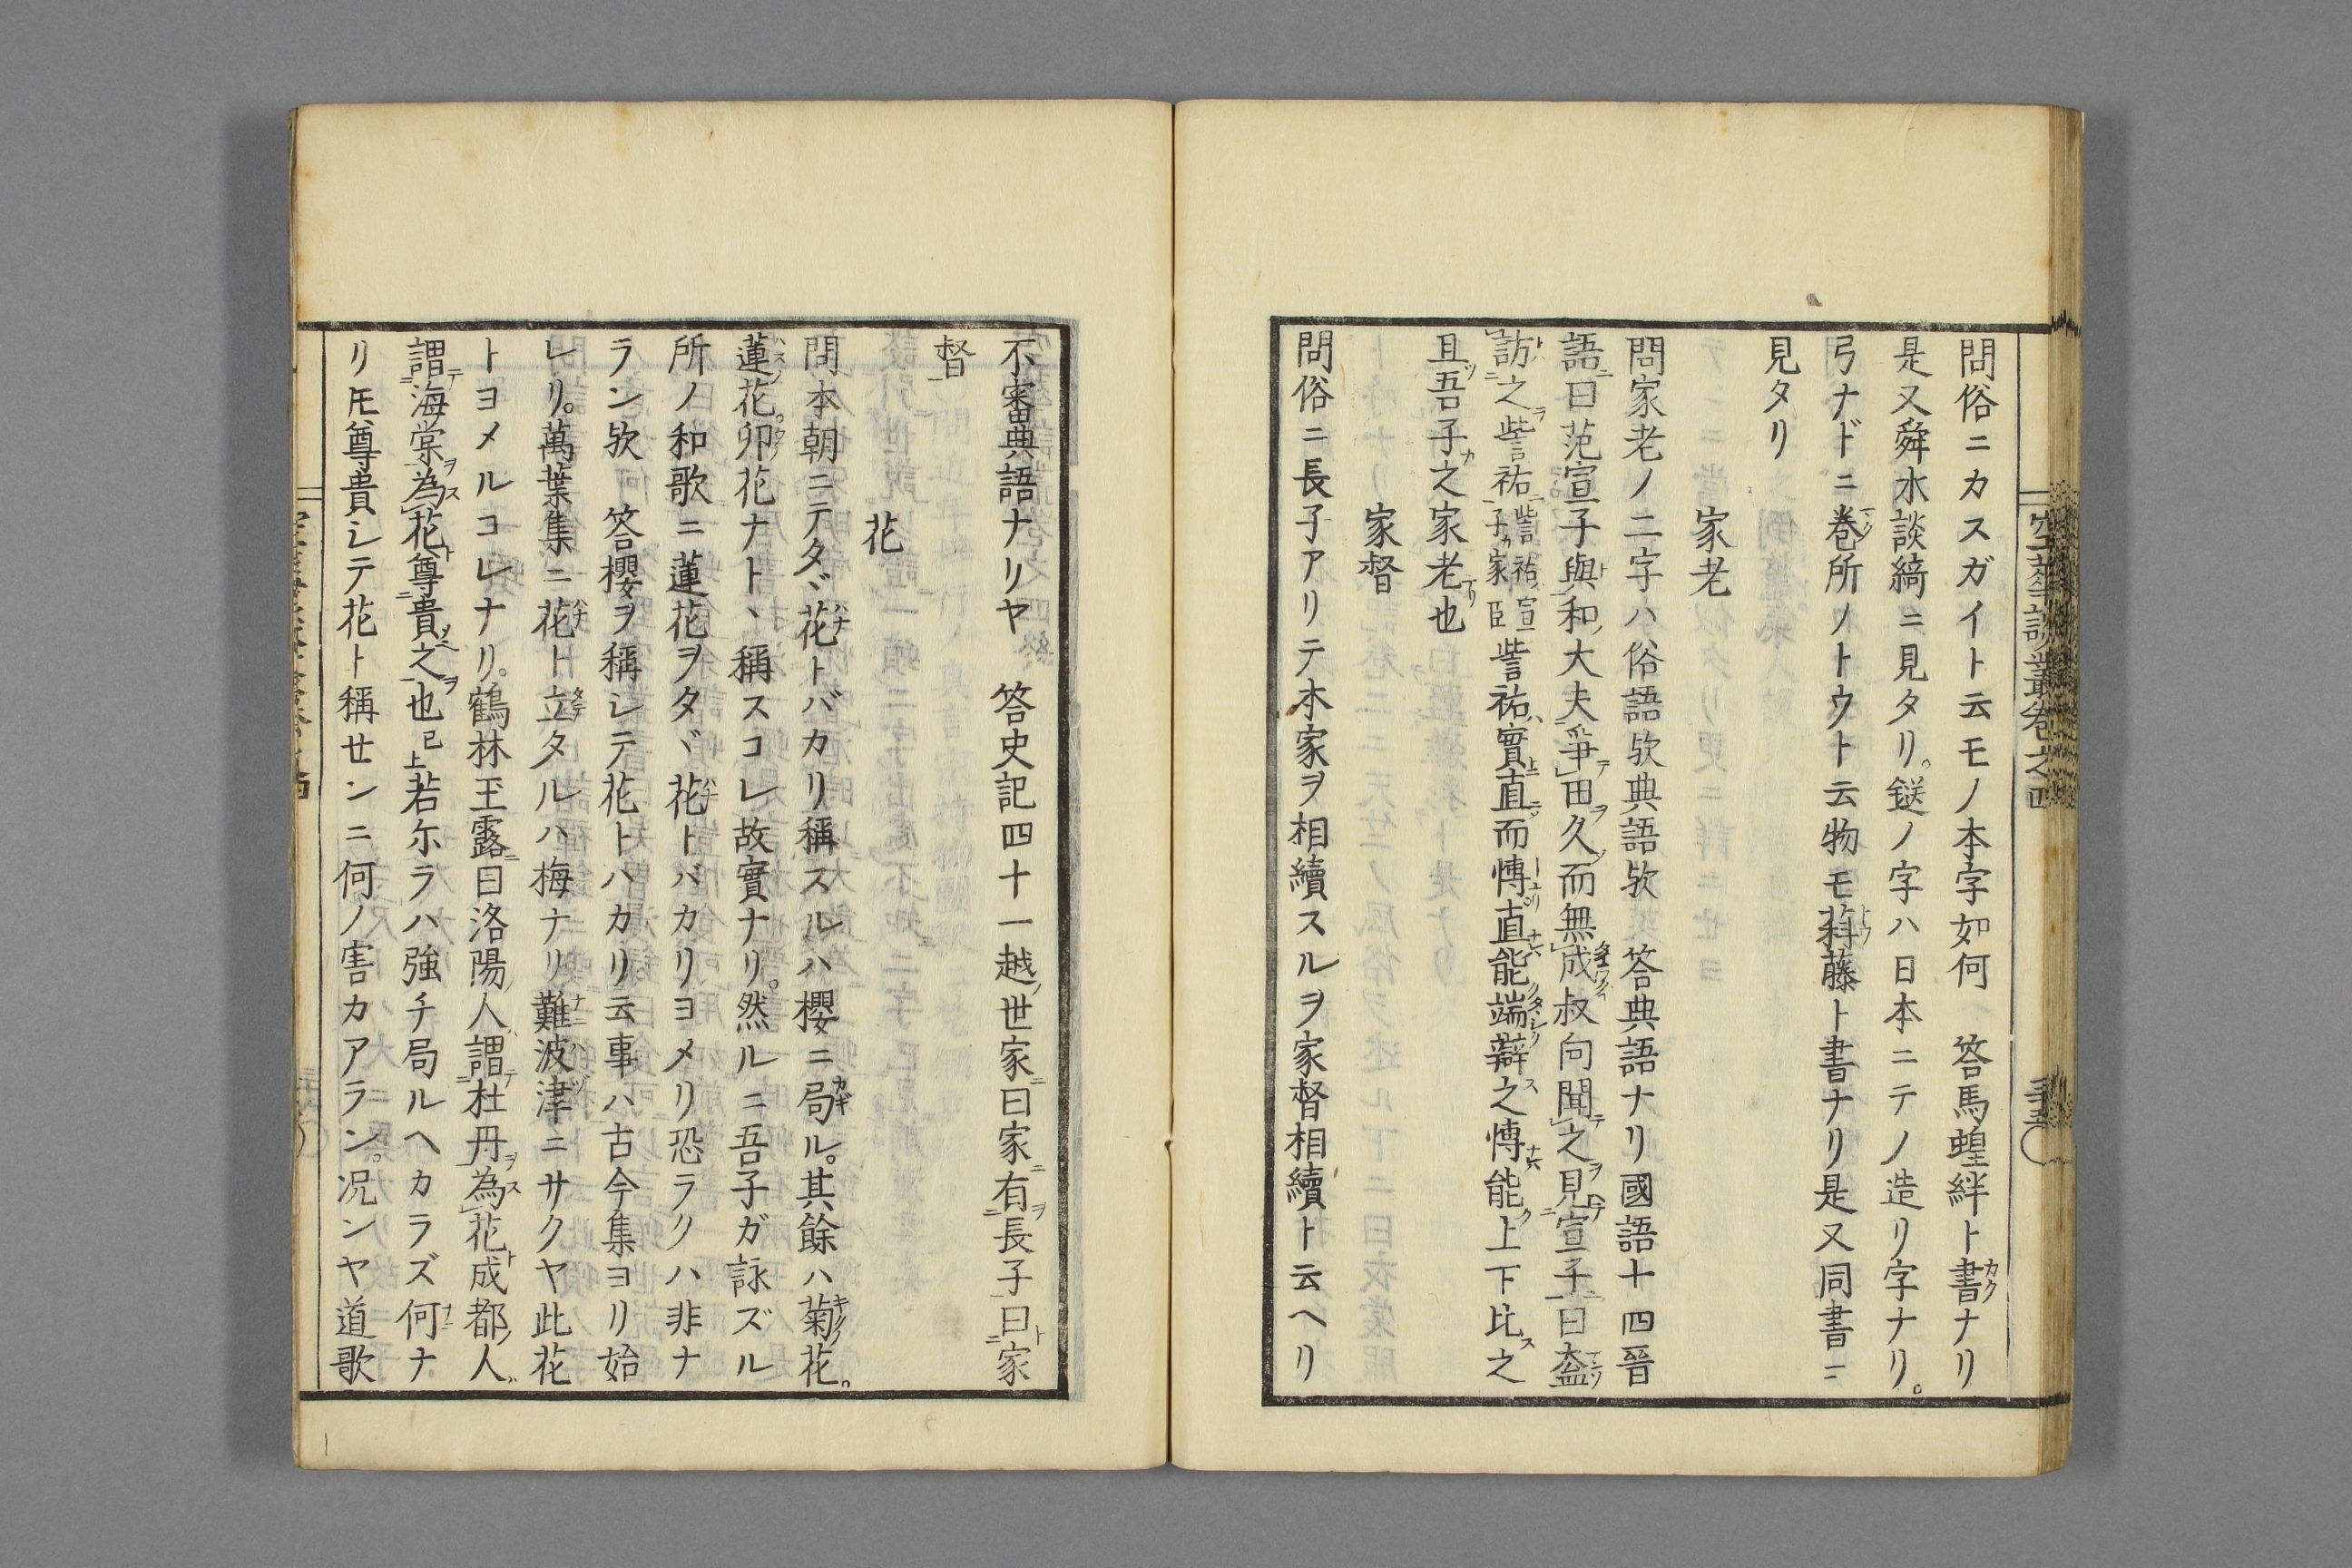 問俗ニカスガイト云モノ本字如何　答馬蝗絆ト書ナリ
是又舜水談綺ニ見タリ。鎹ノ字ハ日本ニテノ造リ字ナリ。
弓ナドニ巻所ノトウト云物モ䔖藤ト書ナリ是又同書ニ
見タリ
家老
問家老ノ二字ハ俗語欤典語欤　答典語ナリ國語十四晉
語曰范宣子與和大夫爭田久而無成叔向聞之見宣子曰盍
訪之訾祐訾祐宣子家臣訾祐實直而博直能端辯之博能上下比之
且吾子之家老也
家督
問俗ニ長子アリテ本家ヲ相續スルヲ家督相續ト云ヘリ
不審典語ナリヤ　答史記四十一越世家曰家有長子曰家
督
花
問本朝ニテタヾ花トバカリ稱スルハ櫻ニ局ル。其餘ハ菊花。
蓮花。卯花ナト丶稱スコレ故實ナリ。然ルニ吾子ガ詠ズル
所ノ和歌ニ蓮花ヲタヾ花トバカリヨメリ恐ラクハ非ナ
ラン欤　答櫻ヲ稱シテ花トハカリ云事ハ古今集ヨリ始
レリ。萬葉集ニ花ト立タルハ梅ナリ難波津ニサクヤ此花
トヨメルコレナリ。鶴林玉露曰洛陽人謂牡丹為花成都人
謂海棠為花尊貴之也已上若尓ラハ強チ局ルヘカラズ何ナ
リ𪜈尊貴シテ花ト稱センニ何ノ害カアラン。况ンヤ道歌